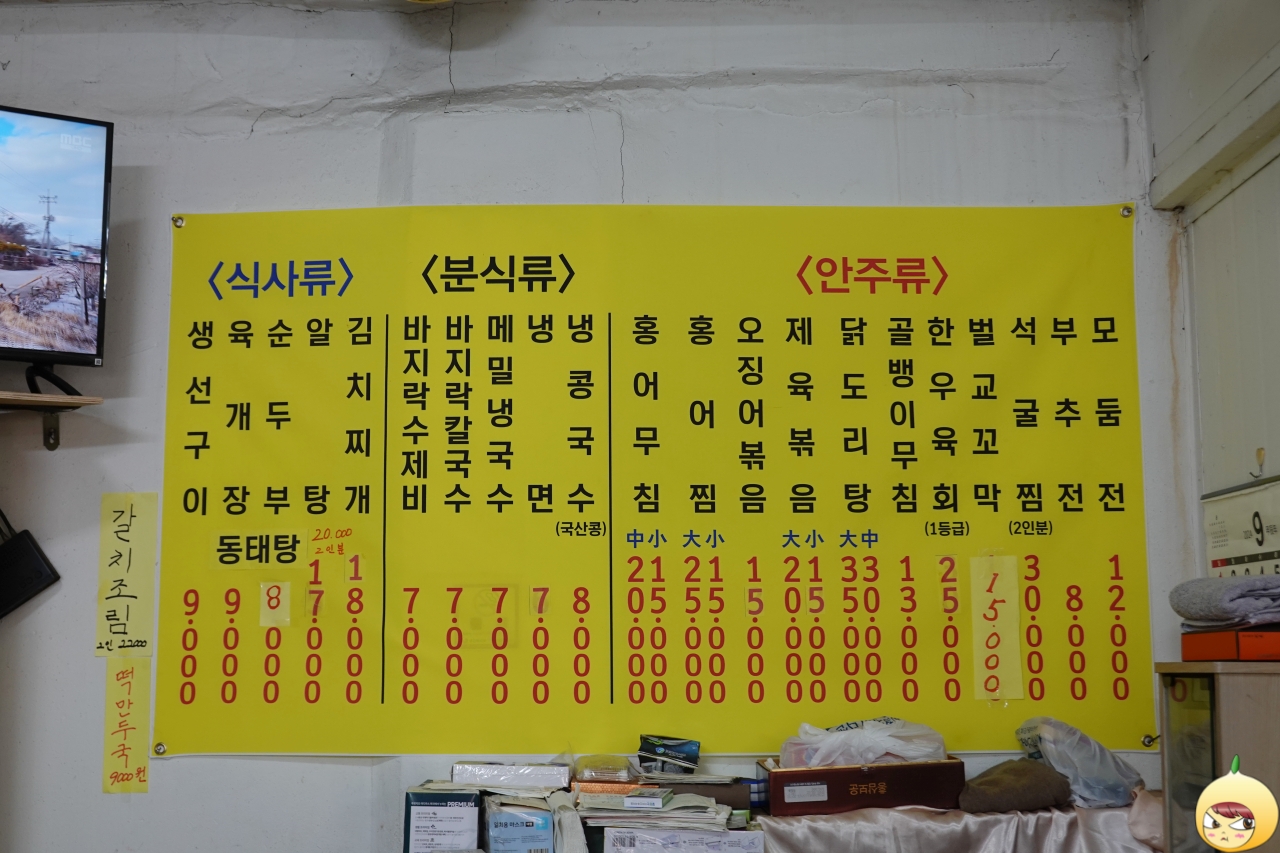 mbc
〈식사류〉
생선구이 9.000
육개장 9.000
순두부 8.000
알탕 17.000
김치찌개 18.000
동태탕 20.000 2인분
〈분식류〉
바지락수제비 7.000
바지락칼국수 7.000
메밀냉국수 7.000
냉면 7.000
냉콩국수 (국산콩) 8.000
〈안주류〉
홍어무침 中小 20.000 15.000
홍어찜 大小 25.000 15.000
오징어볶음 15.000
제육볶음 大小 20.000 15.000
닭도리탕 大中 35.000 30.000
골뱅이무침 13.000
한우육회 (1등급) 25.000
벌교꼬막 15.000
석굴찜 (2인분) 30.000
부추전 8.000
모둠전 12.000
갈치조림
2인 22000
떡만두국
9000원
9
PREMIUM